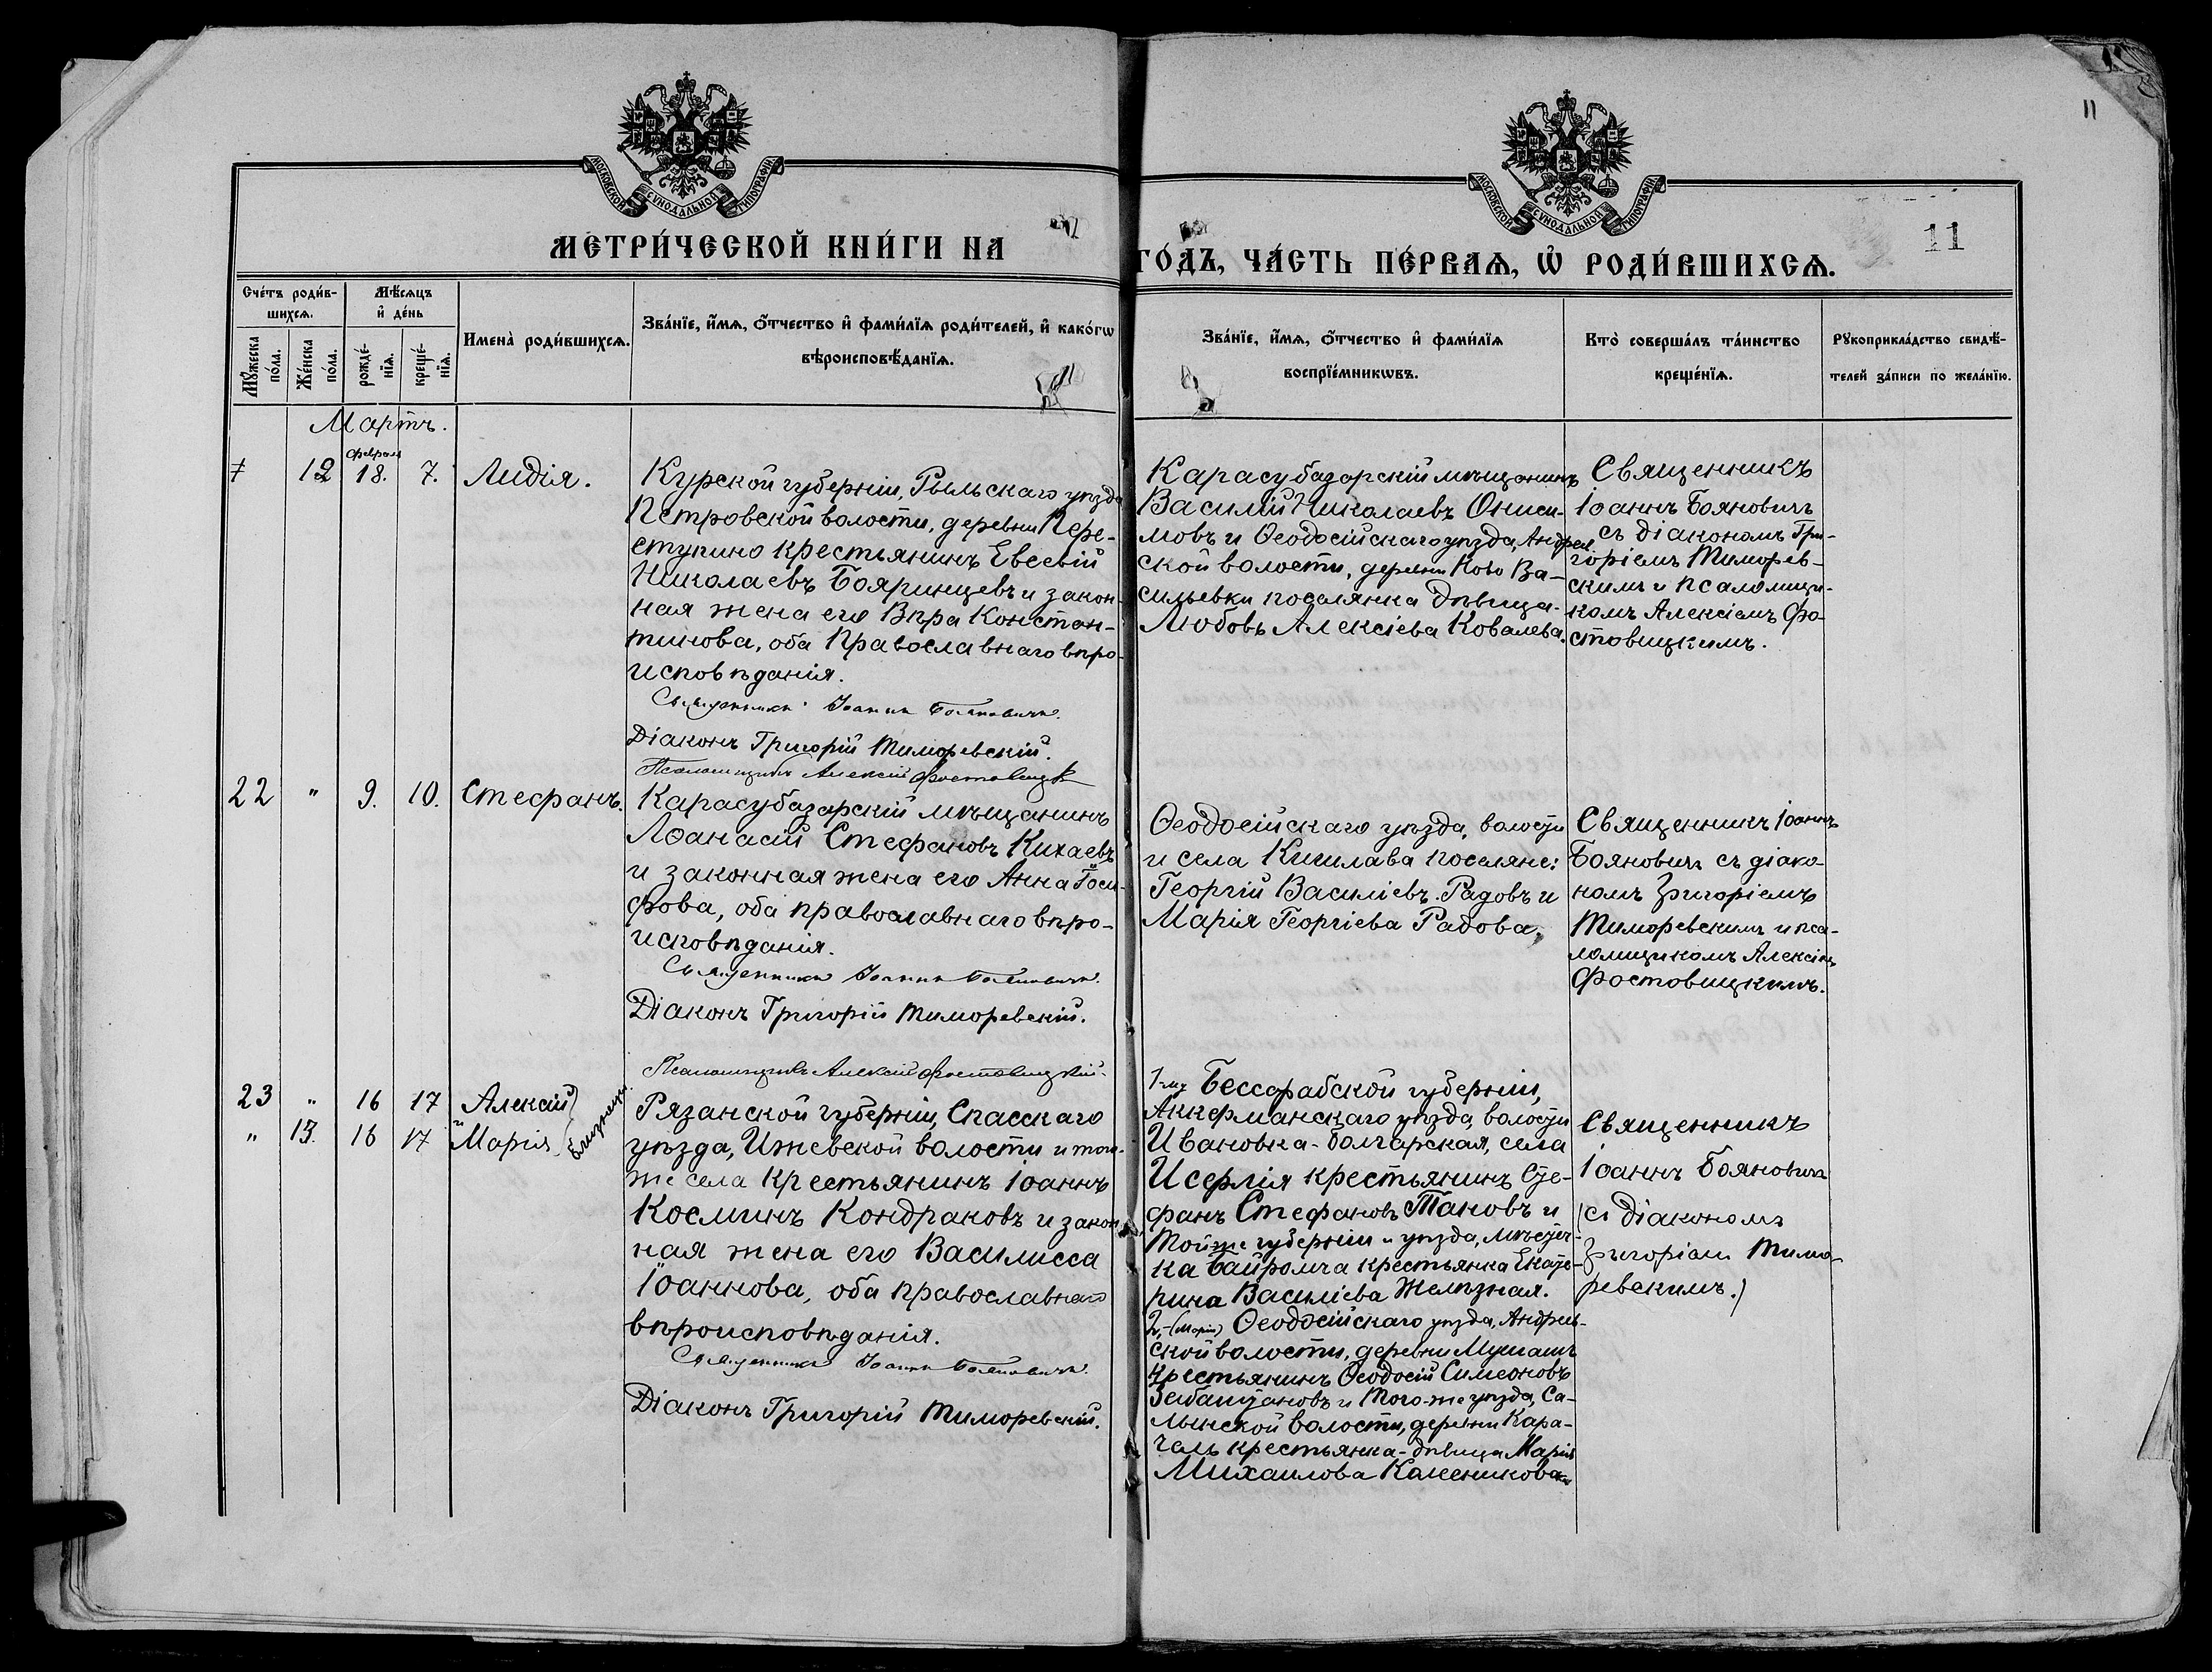 11
МОСКОВСКОЙ СѴНОДАЛЬНОЙ ТИПОГРАФІИ
МОСКОВСКОЙ СѴНОДАЛЬНОЙ ТИПОГРАФІИ
11
МЕТРИ́ЧЕСКОЙ КНИ́ГИ НА
ГО́ДЪ, ЧА́СТЬ ПЕ́РВАѦ, Ѡ҆ РОДИ́ВШИХСѦ.
Сче́тъ роди́в-
шихсѧ.
Мꙋ́жеска по́ла.
Же́нска по́ла.
Мѣ́сѧцъ
и҆ де́нь
рожде́-
нїѧ.
креще́-
нїѧ.
Имена̀ роди́вшихсѧ.
Зва́нїе, и҆́мѧ, ѻ҆́тчество и҆ фами́лїѧ роди́телей, и҆ како́гѡ
вѣроисповѣ́данїѧ.
Зва́нїе, и҆́мѧ, ѻ҆́тчество и҆ фами́лїѧ
воспрїе́мникѡвъ.
Кто̀ соверша́лъ та́инство
креще́нїѧ.
Рꙋкоприкла́дство свидѣ́-
телей за́писи по жела́нїю.
Мартъ.
февраля
12 18. 7. Лидія.
Курской губерніи, Рыльскаго уѣзда
Петровской волости, деревни Пере-
ступино крестьянинъ Евсевій
Николаевъ Бояринцевъ и закон-
ная жена его Вѣра Констан-
тинова, оба Православнаго вѣро-
исповѣданія.
Священникъ Іоаннъ Бояновичъ.
Діаконъ Григорій Тиморевскій.
Псаломщикъ Алексій Фостовицк
Карасубазарскій мѣщанинъ
Василій Николаевъ Ониси-
мовъ и Ѳеодосійскаго уѣзда, Андреев
ской волости, деревни Ново Ва-
сильевки поселянка дѣвица
Любовь Алексіева Ковалева.
Священникъ
Іоаннъ Бояновичъ
съ діакономъ Гри-
горіемъ Тиморев-
скимъ и псаломщи-
комъ Алексіемъ Фо-
стовицкимъ.
22 " 9. 10. Стефанъ.
Карасубазарскій мѣщанинъ
Аѳанасій Стефановъ Кихаевъ
и законная жена его Анна Іоси-
фова, оба православнаго вѣро-
исповѣданія.
Священникъ Іоаннъ Бояновичъ.
Діаконъ Григорій Тиморевскій.
Псаломщикъ Алексій Фостовицкій.
Ѳеодосійскаго уѣзда, волости
и села Кишлава поселяне:
Георгій Василіевъ Радовъ и
Марія Георгіева Радова.
Священникъ Іоаннъ
Бояновичъ съ діако-
номъ Григоріемъ
Тиморевскимъ и пса-
ломщикомъ Алексіемъ
Фостовицкимъ.
23 " 16 17 Алексій
и
" 13. 16 17 Марія
близнецы.
Рязанской губерніи, Спасскаго
уѣзда, Ижевской волости и того-
же села крестьянинъ Іоаннъ
Косминъ Кондраковъ и закон
ная жена его Василисса
Іоаннова, оба православнаго
вѣроисповѣданія.
Священникъ Іоаннъ Бояновичъ.
Діаконъ Григорій Тиморевскій.
Бессарабской губерніи,
Аккерманскаго уѣзда, волости
Ивановка-болгарская, села
Исерлія крестьянинъ Сте-
фанъ Стефановъ Тановъ и
тойже губерніи и уѣзда, мѣстеч-
ка Байрамча крестьянка Екате-
рина Василіева Желѣзная.
2,-(Марія) Ѳеодосійскаго уѣзда, Андреев-
ской волости, деревни Мушашъ
крестьянинъ Ѳеодосій Симеоновъ
и того-же уѣзда, Са-
лынской волости, деревни Кара-
чаль крестьянка-дѣвица Марія
Михаилова
Священникъ
Іоаннъ Бояновичъ
(съ діакономъ
Григоріемъ Тимо-
ревскимъ.)